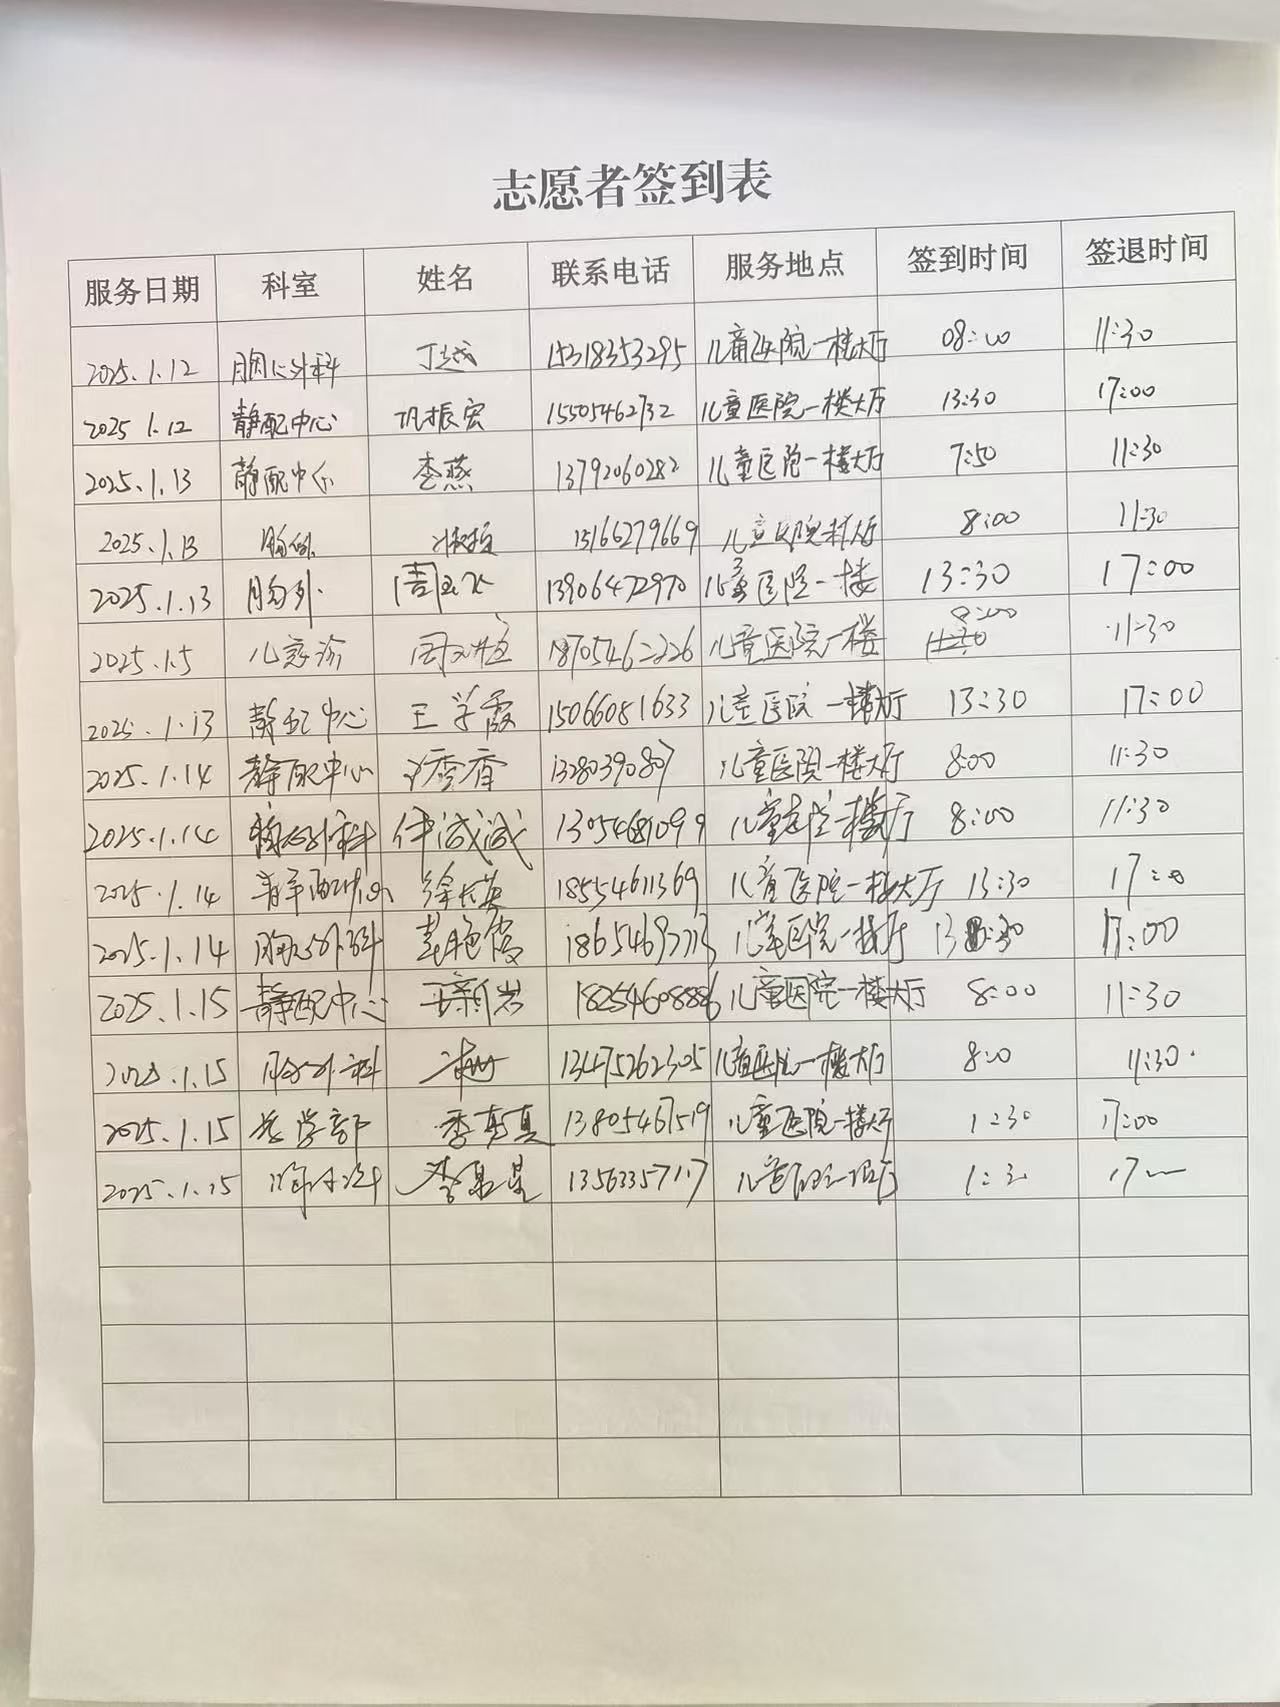 志愿者签到表
服务日期 科室 姓名 联系电话 服务地点 签到时间 签退时间
2025.1.12 胸心外科 丁越 15318353295 儿童医院一楼大厅 08:00 11:30
2025 1.12 静配中心 巩振宏 15505462732 儿童医院一楼大厅 13:30 17:00
2025.1.13 静配中心 李燕 13792060282 儿童医院一楼大厅 7:50 11:30
2025.1.13 胸外 15166279669 儿童医院 8:00 11:30
2025.1.13 胸外 13906472970 儿童医院一楼 13:30 17:00
2025.1.5 儿急诊 18705462226 儿童医院一楼 8:00 11:30
2025.1.13 静配中心 王学霞 15066081633 儿童医院一楼大厅 13:30 17:00
2025.1.14 静配中心 13280390807 儿童医院一楼大厅 8:00 11:30
2025.1.14 胸心外科 13054681099 儿童医院一楼大厅 8:00 11:30
2025.1.14 静配中心 18554611369 儿童医院一楼大厅 13:30 17:00
2025.1.14 胸心外科 儿童医院一楼大厅 17:00
2025.1.15 静配中心 王新岩 18254608886 儿童医院一楼大厅 8:00 11:30
2025.1.15 胸心外科 13475262305 儿童医院一楼大厅 8:00 11:30
2025.1.15 药学部 季真真 13805467519 儿童医院一楼大厅 1:30 17:00
2025.1.15 1:30